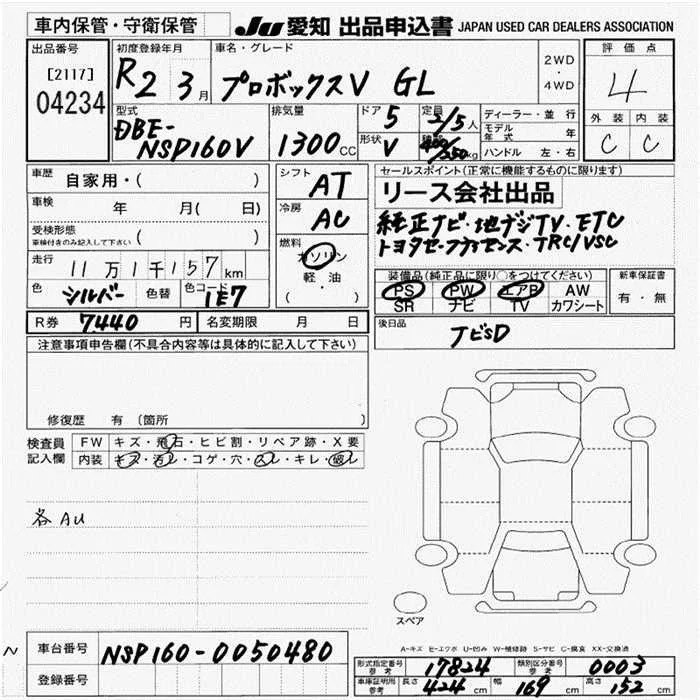 車内保管・守衛保管
JU 愛知 出品申込書 JAPAN USED CAR DEALERS ASSOCIATION
出品番号
[2117]
04234
初度登録年月
R2 3月
車名・グレード
プロボックスV GL
2WD
・
4WD
評価点
4
外装 内装
C C
型式
DBE-
NSP160V
排気量
1300CC
ドア 5
形状 V
定員
2/5人
400/250kg
ディーラー・並行
モデル年式 年
ハンドル 左・右
車歴 自家用・( )
車検 年 月( 日)
受検形態
車検付きのみ記入して下さい ( )
走行 11万1千157km
色 シルバー 色替 色コード 1E7
シフト AT
冷房 AC
燃料
ガソリン
軽・油
( )
セールスポイント(正常に機能するものに限ります)
リース会社出品
純正ナビ・地デジTV・ETC
トヨタセーフティセンス・TRC/VSC
装備品(純正品に限り○をつけてください)
PS PW エアB AW
SR ナビ TV カワシート
新車保証書
有・無
R券 7440 円 名変期限 月 日
後日品
ナビSD
注意事項申告欄(不具合内容等は具体的に記入して下さい)
修復歴 有 (箇所 )
検査員
記入欄
FW キズ・飛石・ヒビ割・リペア跡・X要
内装 キズ・汚レ・コゲ・穴・スレ・キレ・破レ
各AU
スペア
A-キズ E-エクボ U-凹み W-補修跡 S-サビ C-腐食 XX-交換済
~
車台番号 NSP160-0050480
登録番号
形式指定番号
参考 17824
類別区分番号
参考 0003
車庫証明用
参考 長さ 424 cm 幅 169 cm 高さ 152 cm